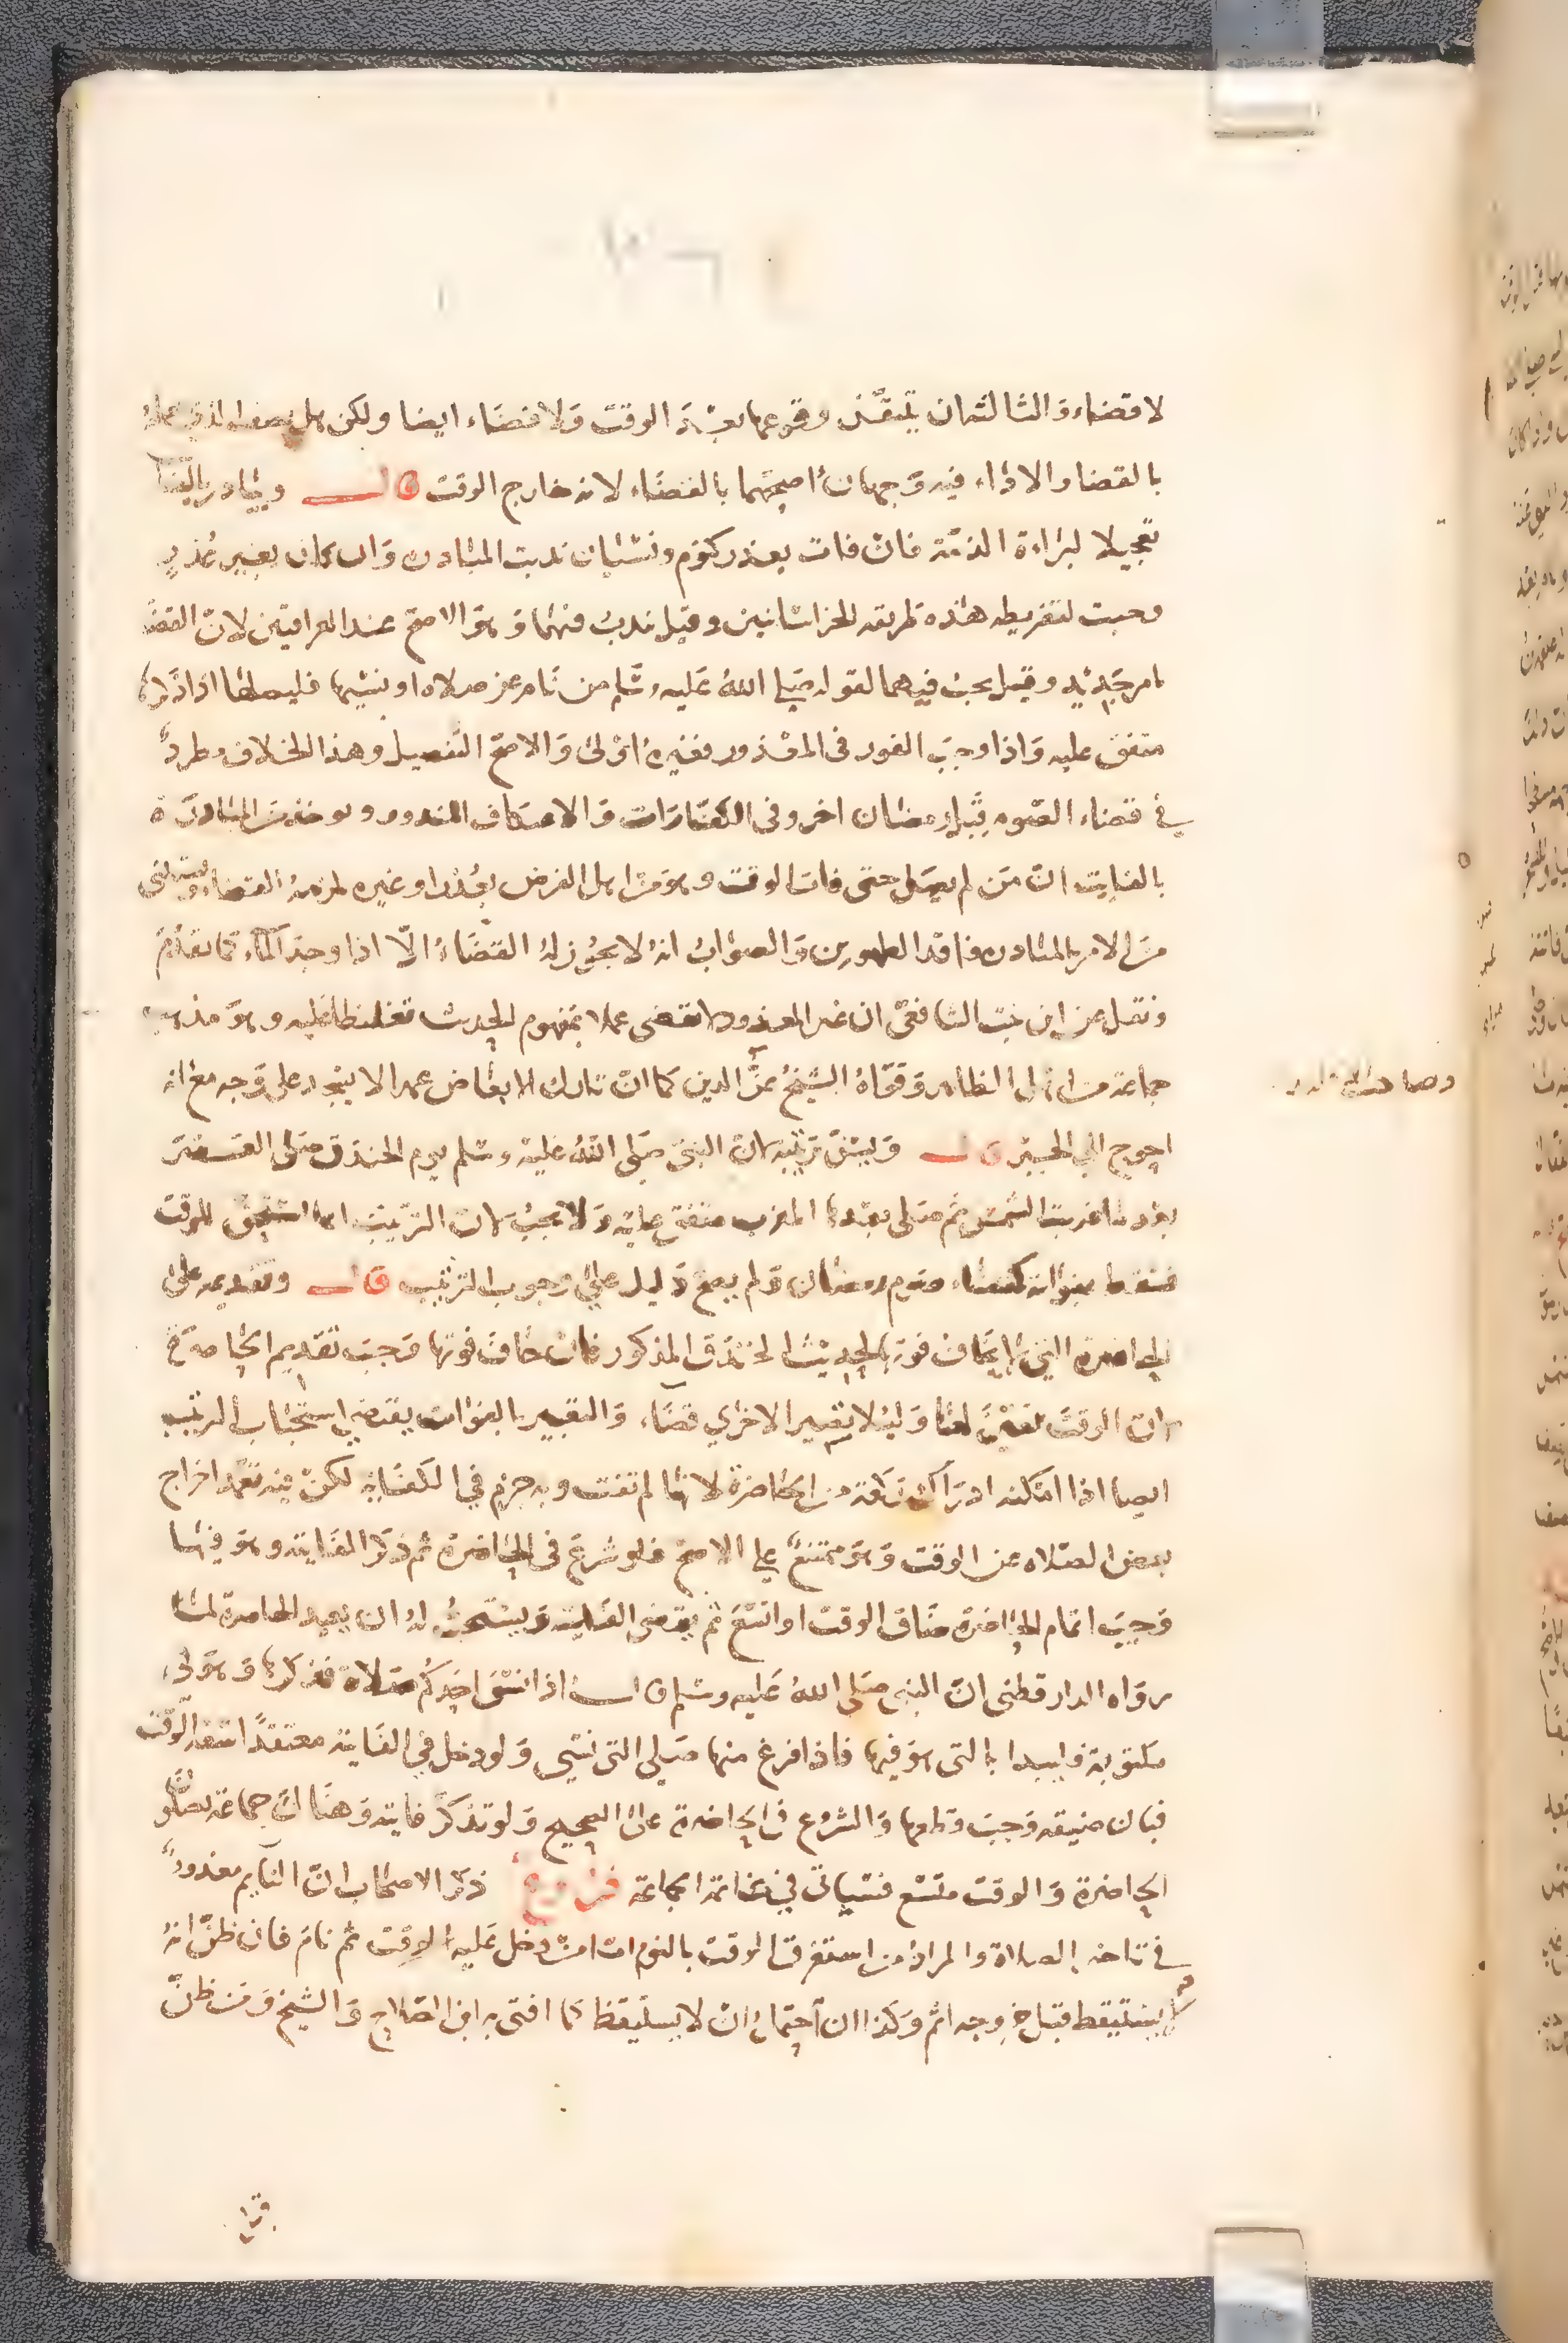 لا قضاء والثالث ان يتيقن وقوعها بعد الوقت ولا قضاء ايضا ولكن هل يصف الذي عمله
بالقضا والاداء فيه وجهان اصحهما بالقضاء لانه خارج الوقت قال ويبادر بالفائت
تعجيلا لبراءة الذمة فان فات بعذر كنوم ونسيان ندبت المبادرة وان كان بغير عذر
وجبت لتفريطه هذه طريقه الخراسانيين وقيل ندب فيهما وهو الاصح عند العراقيين لان القضا
بامر جديد وقيل يجب فيهما لقوله صلى الله عليه وسلم من نام عن صلاه او نسيها فليصلها اذا ذكرها
متفق عليه واذا وجب الفور في المعذور فغيره اولى والاصح التفصيل وهذا الخلاف مطرد
في قضاء الصوم قبل رمضان اخر وفي الكفارات والاعتكاف المنذور ويوخذ من المبادرة
بالفايت ان من لم يصل حتى فات الوقت وهو من اهل الفرض بعذر او غيره لزمه القضاء ويستثنى
من الامر بالمبادره فاقد الطهورين والصواب انه لا يجوز له القضاء الا اذا وجد الماء كما تقدم
ونقل عن ابن بنت الشافعي ان غير المعذور لا يقضي عملا بمفهوم الحديث تغليظا عليه وهو مذهب
جماعة من اهل الظاهر وقواه الشيخ عز الدين كما ان تارك الابعاض عمدا لا يسجد على وجه مع انه
احوج الى الجبر قال ويسن ترتيبه لان النبي صلى الله عليه وسلم يوم الخندق صلى العصر
بعد ما غربت الشمس ثم صلى بعدها المغرب متفق عليه ولا يجب لان الترتيب انما استحق للوقت
فسقط بفواته كقضاء صوم رمضان ولم يصح دليل على وجوب الترتيب قال وتقديمه على
الحاضرة التي لا يخاف فوتها لحديث الخندق المذكور فان خاف فوتها وجب تقديم الحاضرة
لان الوقت تعين لها ولئلا تصير الاخرى قضاء والتعبير بالفوات يقتضي استحباب الترتيب
ايضا اذا امكنه ادراك ركعة من الحاضرة لانها لم تفت وبه جزم في الكفاية لكن فيه تعمد اخراج
بعض الصلاه عن الوقت وهو ممتنع على الاصح فلو شرع في الحاضرة ثم ذكر الفايته وهو فيها
وجب اتمام الحاضرة ضاق الوقت او اتسع ثم يقضي الفايته ويستحب له ان يعيد الحاضرة لما
رواه الدارقطني ان النبي صلى الله عليه وسلم قال اذا نسي احدكم صلاة فذكرها وهو في
مكتوبة فليبدا بالتي هو فيها فاذا فرغ منها صلى التي نسي ولو دخل في الفايته معتقدا سعة الوقت
فبان ضيقه وجب قطعها والشروع في الحاضرة على الصحيح ولو تذكر فايته وهناك جماعة يصلون
الحاضرة والوقت متسع فسياتي في خاتمة الجماعة فرع ذكر الاصحاب ان النايم معذور
في تاخير الصلاة والمراد من استغرق الوقت بالنوم اما من دخل عليه الوقت ثم نام فان ظن انه
لا يستيقظ قبل خروجه اثم وكذا ان احتمل ان لا يستيقظ كما افتى به ابن الصلاح والشيخ ومن ظن